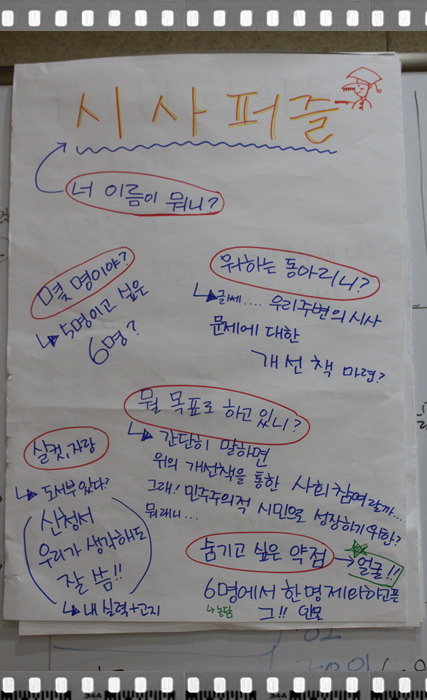 시사퍼즐
너 이름이 뭐니?
몇 명이야?
5명이고 싶은
6명?
뭐하는 동아리니?
글쎄.... 우리주변의 시사
문제에 대한
개선책 마련?
뭘 목표로 하고 있니?
간단히 말하면
위의 개선책을 통한 사회참여랄까...
그래! 민주주의적 시민으로 성장하기위한?
뭐래니...
살컷,자랑
도서부있다?
신청서
우리가 생각해도
잘 씀!!
내 실력+고지
숨기고 싶은 약점
얼굴!!
6명에서 한명제외하고픈
농담
그!! 인물